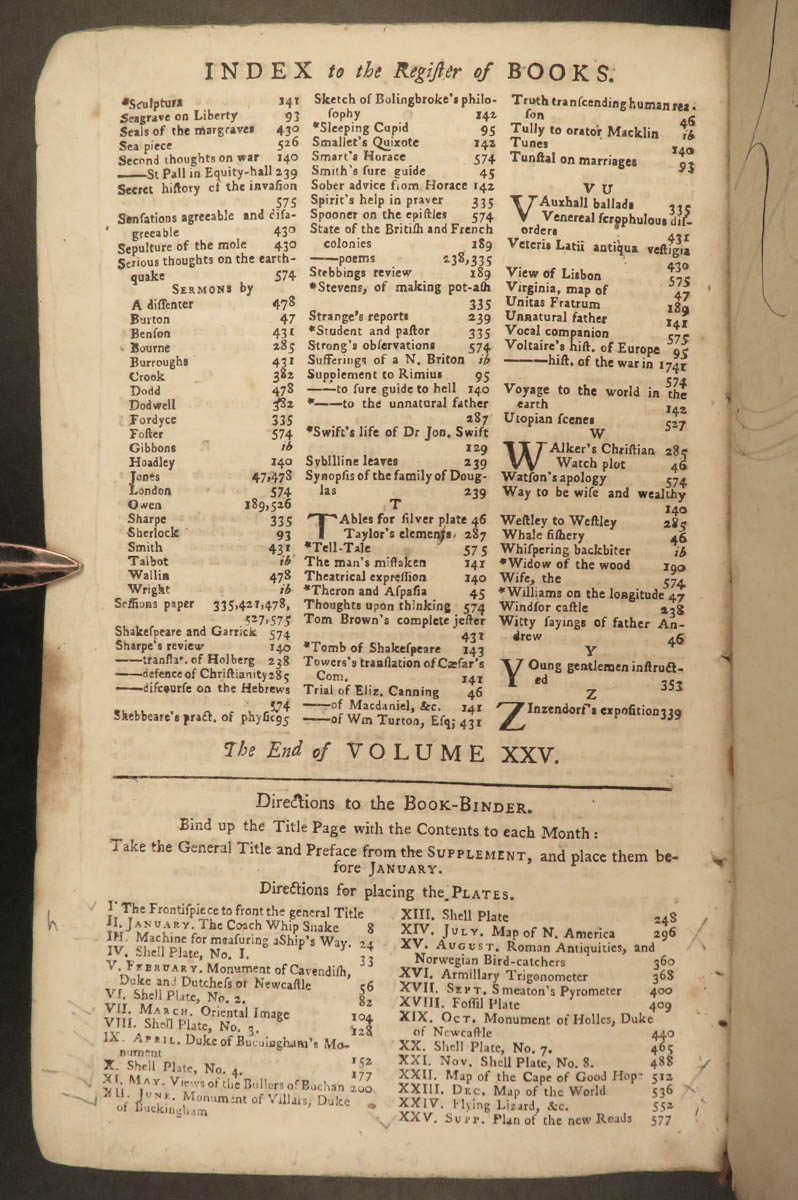 INDEX to the Regiſter of BOOKS.
*Sculptura 141
Seagrave on Liberty 93
Seals of the margraves 430
Sea piece 526
Second thoughts on war 140
——St Pall in Equity-hall 239
Secret hiſtory of the invaſion
575
Senſations agreeable and diſa-
greeable 430
Sepulture of the mole 430
Serious thoughts on the earth-
quake 574
SERMONS by
A diſſenter 478
Burton 47
Benſon 431
Bourne 285
Burroughs 431
Crook 382
Dodd 478
Dodwell 382
Fordyce 335
Foſter 574
Gibbons ib
Hoadley 140
Jones 47,478
London 574
Owen 189,526
Sharpe 335
Sherlock 93
Smith 431
Talbot ib
Wallin 478
Wright ib
Seſſions paper 335,421,478,
527,575
Shakeſpeare and Garrick 574
Sharpe's review 140
——tranſlat. of Holberg 238
——defence of Chriſtianity 285
——diſcourſe on the Hebrews
574
Shebbeare's pract. of phyſic 95
Sketch of Bolingbroke's philo-
ſophy 142
*Sleeping Cupid 95
Smallet's Quixote 142
Smart's Horace 574
Smith's ſure guide 45
Sober advice from Horace 142
Spirit's help in prayer 335
Spooner on the epiſtles 574
State of the Britiſh and French
colonies 189
——poems 238,335
Stebbings review 189
*Stevens, of making pot-aſh
335
Strange's reports 239
*Student and paſtor 335
Strong's obſervations 574
Sufferings of a N. Briton ib
Supplement to Rimius 95
——to ſure guide to hell 140
*——to the unnatural father
287
*Swift's life of Dr Jon. Swift
129
Sybilline leaves 239
Synopſis of the family of Doug-
las 239
T
TAbles for ſilver plate 46
Taylor's elements, 287
*Tell-Tale 575
The man's miſtaken 141
Theatrical expreſſion 140
*Theron and Aſpaſia 45
Thoughts upon thinking 574
Tom Brown's complete jeſter
431
*Tomb of Shakeſpeare 143
Towers's tranſlation of Cæſar's
Com. 141
Trial of Eliz. Canning 46
——of Macdaniel, &c. 141
——of Wm Turton, Eſq; 431
Truth tranſcending human rea-
ſon 46
Tully to orator Macklin ib
Tunes 140
Tunſtal on marriages 93
V U
VAuxhall ballads 335
Venereal ſcrophulous diſ-
orders 431
Veteris Latii antiqua veſtigia
430
View of Liſbon 575
Virginia, map of 47
Unitas Fratrum 189
Unnatural father 141
Vocal companion 575
Voltaire's hiſt. of Europe 95
———hiſt. of the war in 1741
574
Voyage to the world in the
earth 142
Utopian ſcenes 527
W
WAlker's Chriſtian 285
Watch plot 46
Watſon's apology 574
Way to be wiſe and wealthy
140
Weſtley to Weſtley 285
Whale fiſhery 46
Whiſpering backbiter ib
*Widow of the wood 190
Wife, the 574
*Williams on the longitude 47
Windſor caſtle 238
Witty ſayings of father An-
drew 46
Y
YOung gentlemen inſtruct-
ed 353
Z
ZInzendorf's expoſition 339
The End of VOLUME XXV.
Directions to the BOOK-BINDER.
Bind up the Title Page with the Contents to each Month:
Take the General Title and Preface from the SUPPLEMENT, and place them be-
fore JANUARY.
Directions for placing the PLATES.
I The Frontiſpiece to front the general Title
II. JANUARY. The Coach Whip Snake 8
III. Machine for meaſuring a Ship's Way. 24
IV. Shell Plate, No. 1. 33
V. FEBRUARY. Monument of Cavendiſh,
Duke and Dutcheſs of Newcaſtle 56
VI. Shell Plate, No. 2. 82
VII. MARCH. Oriental Image 104
VIII. Shell Plate, No. 3. 128
IX. APRIL. Duke of Buckingham's Mo-
nument 152
X. Shell Plate, No. 4. 177
XI. MAY. Views of the Bullers of Buchan 200
XII. JUNE. Monument of Villars, Duke
of Buckingham
XIII. Shell Plate 248
XIV. JULY. Map of N. America 296
XV. AUGUST. Roman Antiquities, and
Norwegian Bird-catchers 360
XVI. Armillary Trigonometer 368
XVII. SEPT. Smeaton's Pyrometer 400
XVIII. Foſſil Plate 409
XIX. OCT. Monument of Holles, Duke
of Newcaſtle 440
XX. Shell Plate, No. 7. 465
XXI. NOV. Shell Plate, No. 8. 488
XXII. Map of the Cape of Good Hope 512
XXIII. DEC. Map of the World 536
XXIV. Flying Lizard, &c. 552
XXV. SUPP. Plan of the new Roads 577
h